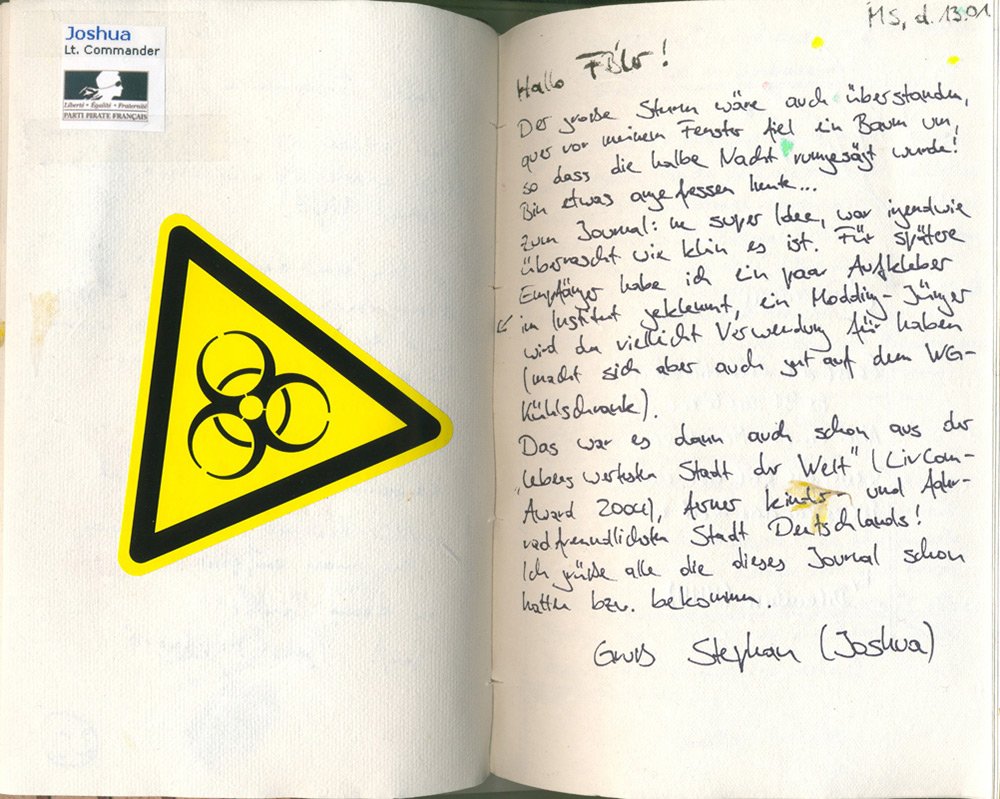 Joshua
Lt. Commander
Liberté • Égalité • Fraternité
PARTI PIRATE FRANÇAIS
MS, d. 13.01
Hallo FB'ler!
Der große Sturm wäre auch überstanden,
quer vor meinem Fenster fiel ein Baum um,
so dass die halbe Nacht rumgesägt wurde!
Bin etwas angefressen heute...
Zum Journal: ne super Idee, war irgendwie
überrascht wie klein es ist. Für spätere
Empfänger habe ich ein paar Aufkleber
im Institut geklemmt, ein Modding-Jünger
wird da vielleicht Verwendung für haben
(macht sich aber auch gut auf dem WG-
Kühlschrank).
Das war es dann auch schon aus der
"lebenswertesten Stadt der Welt" (LivCom-
Award 2004), ferner kinder- und
radfreundlichsten Stadt Deutschlands!
Ich grüße alle die dieses Journal schon
hatten bzw. bekommen.
Gruß Stephan (Joshua)